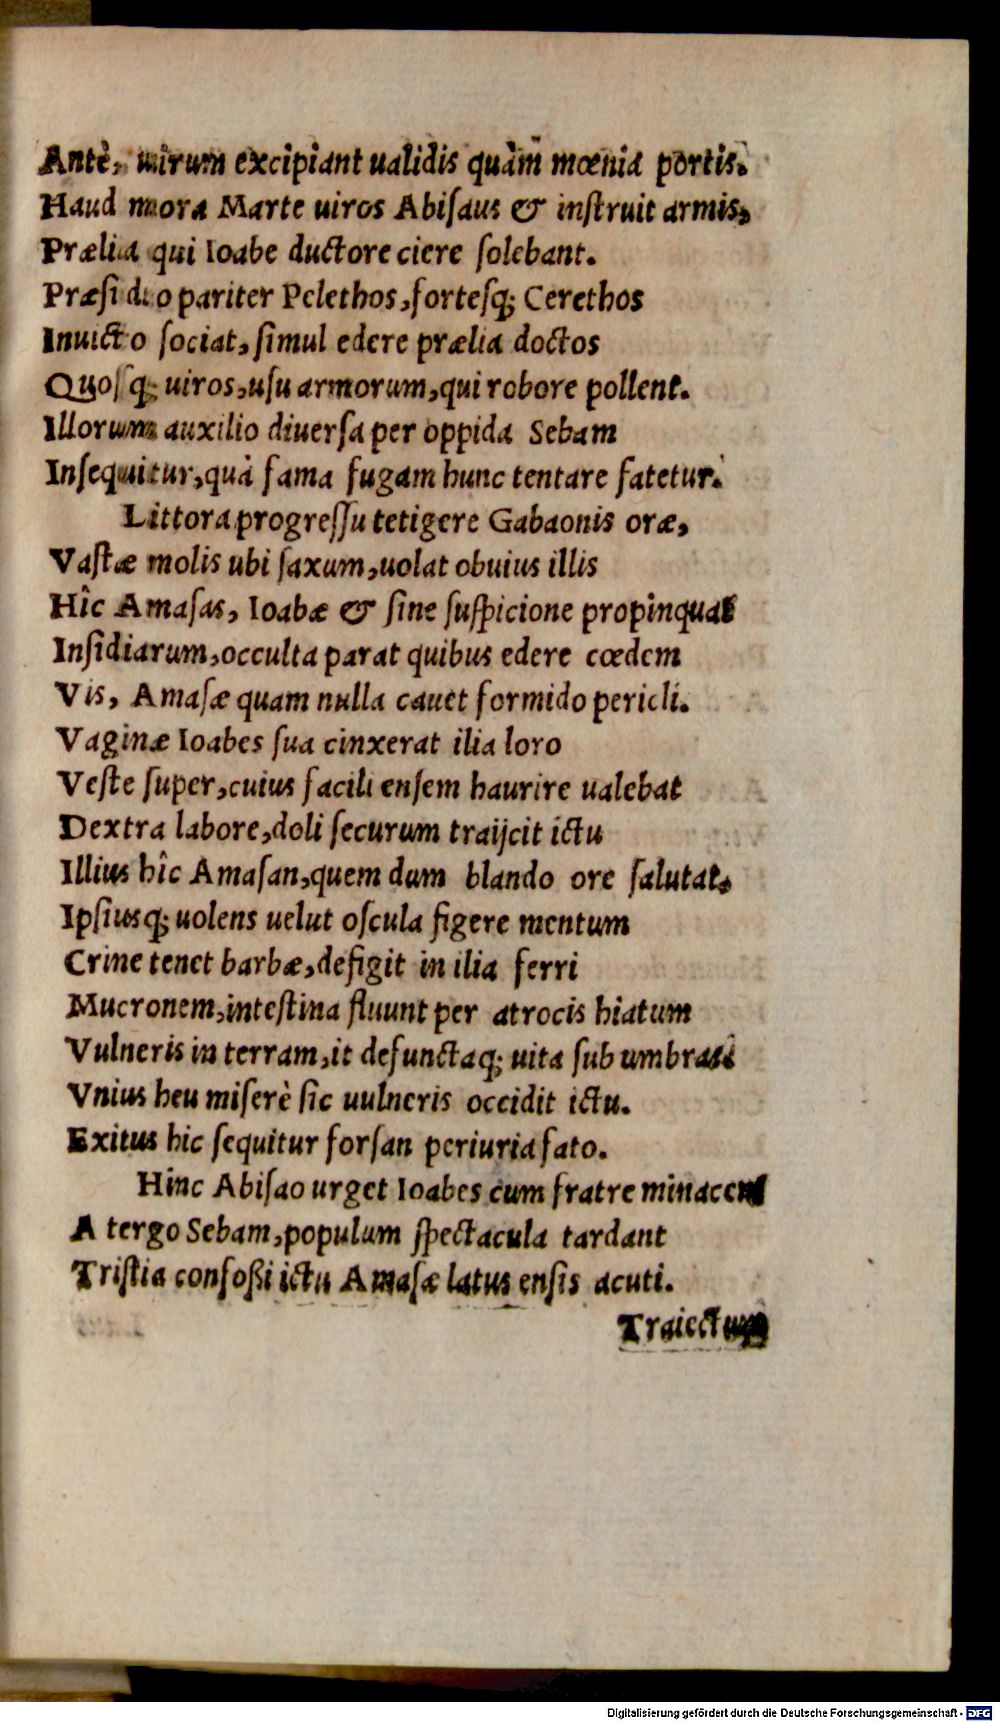 Antè, uirum excipiant ualidis quàm mœnia portis.
Haud mora Marte uiros Abisaus & instruit armis,
Prælia qui Ioabe ductore ciere solebant.
Præsidio pariter Pelethos, fortesq; Cerethos
Inuicto sociat, simul edere prælia doctos
Quosq; uiros, usu armorum, qui robore pollent.
Illorum auxilio diuersa per oppida Sebam
Insequitur, quà fama fugam hunc tentare fatetur.
Littora progressu tetigere Gabaonis oræ,
Vastæ molis ubi saxum, uolat obuius illis
Hîc Amasas, Ioabæ & sine suspicione propinquat
Insidiarum, occulta parat quibus edere cœdem
Vis, Amasæ quam nulla cauet formido pericli.
Vaginæ Ioabes sua cinxerat ilia loro
Veste super, cuius facili ensem haurire ualebat
Dextra labore, doli securum traijcit ictu
Illius hîc Amasan, quem dum blando ore salutat,
Ipsiusq; uolens uelut oscula figere mentum
Crine tenet barbæ, defigit in ilia ferri
Mucronem, intestina fluunt per atrocis hiatum
Vulneris in terram, it defunctaq; uita sub umbras:
Vnius heu miserè sic uulneris occidit ictu.
Exitus hic sequitur forsan periuria fato.
Hinc Abisao urget Ioabes cum fratre minacem
A tergo Sebam, populum spectacula tardant
Tristia confoßi ictu Amasæ latus ensis acuti.
Traiectum
Digitalisierung gefördert durch die Deutsche Forschungsgemeinschaft - DFG